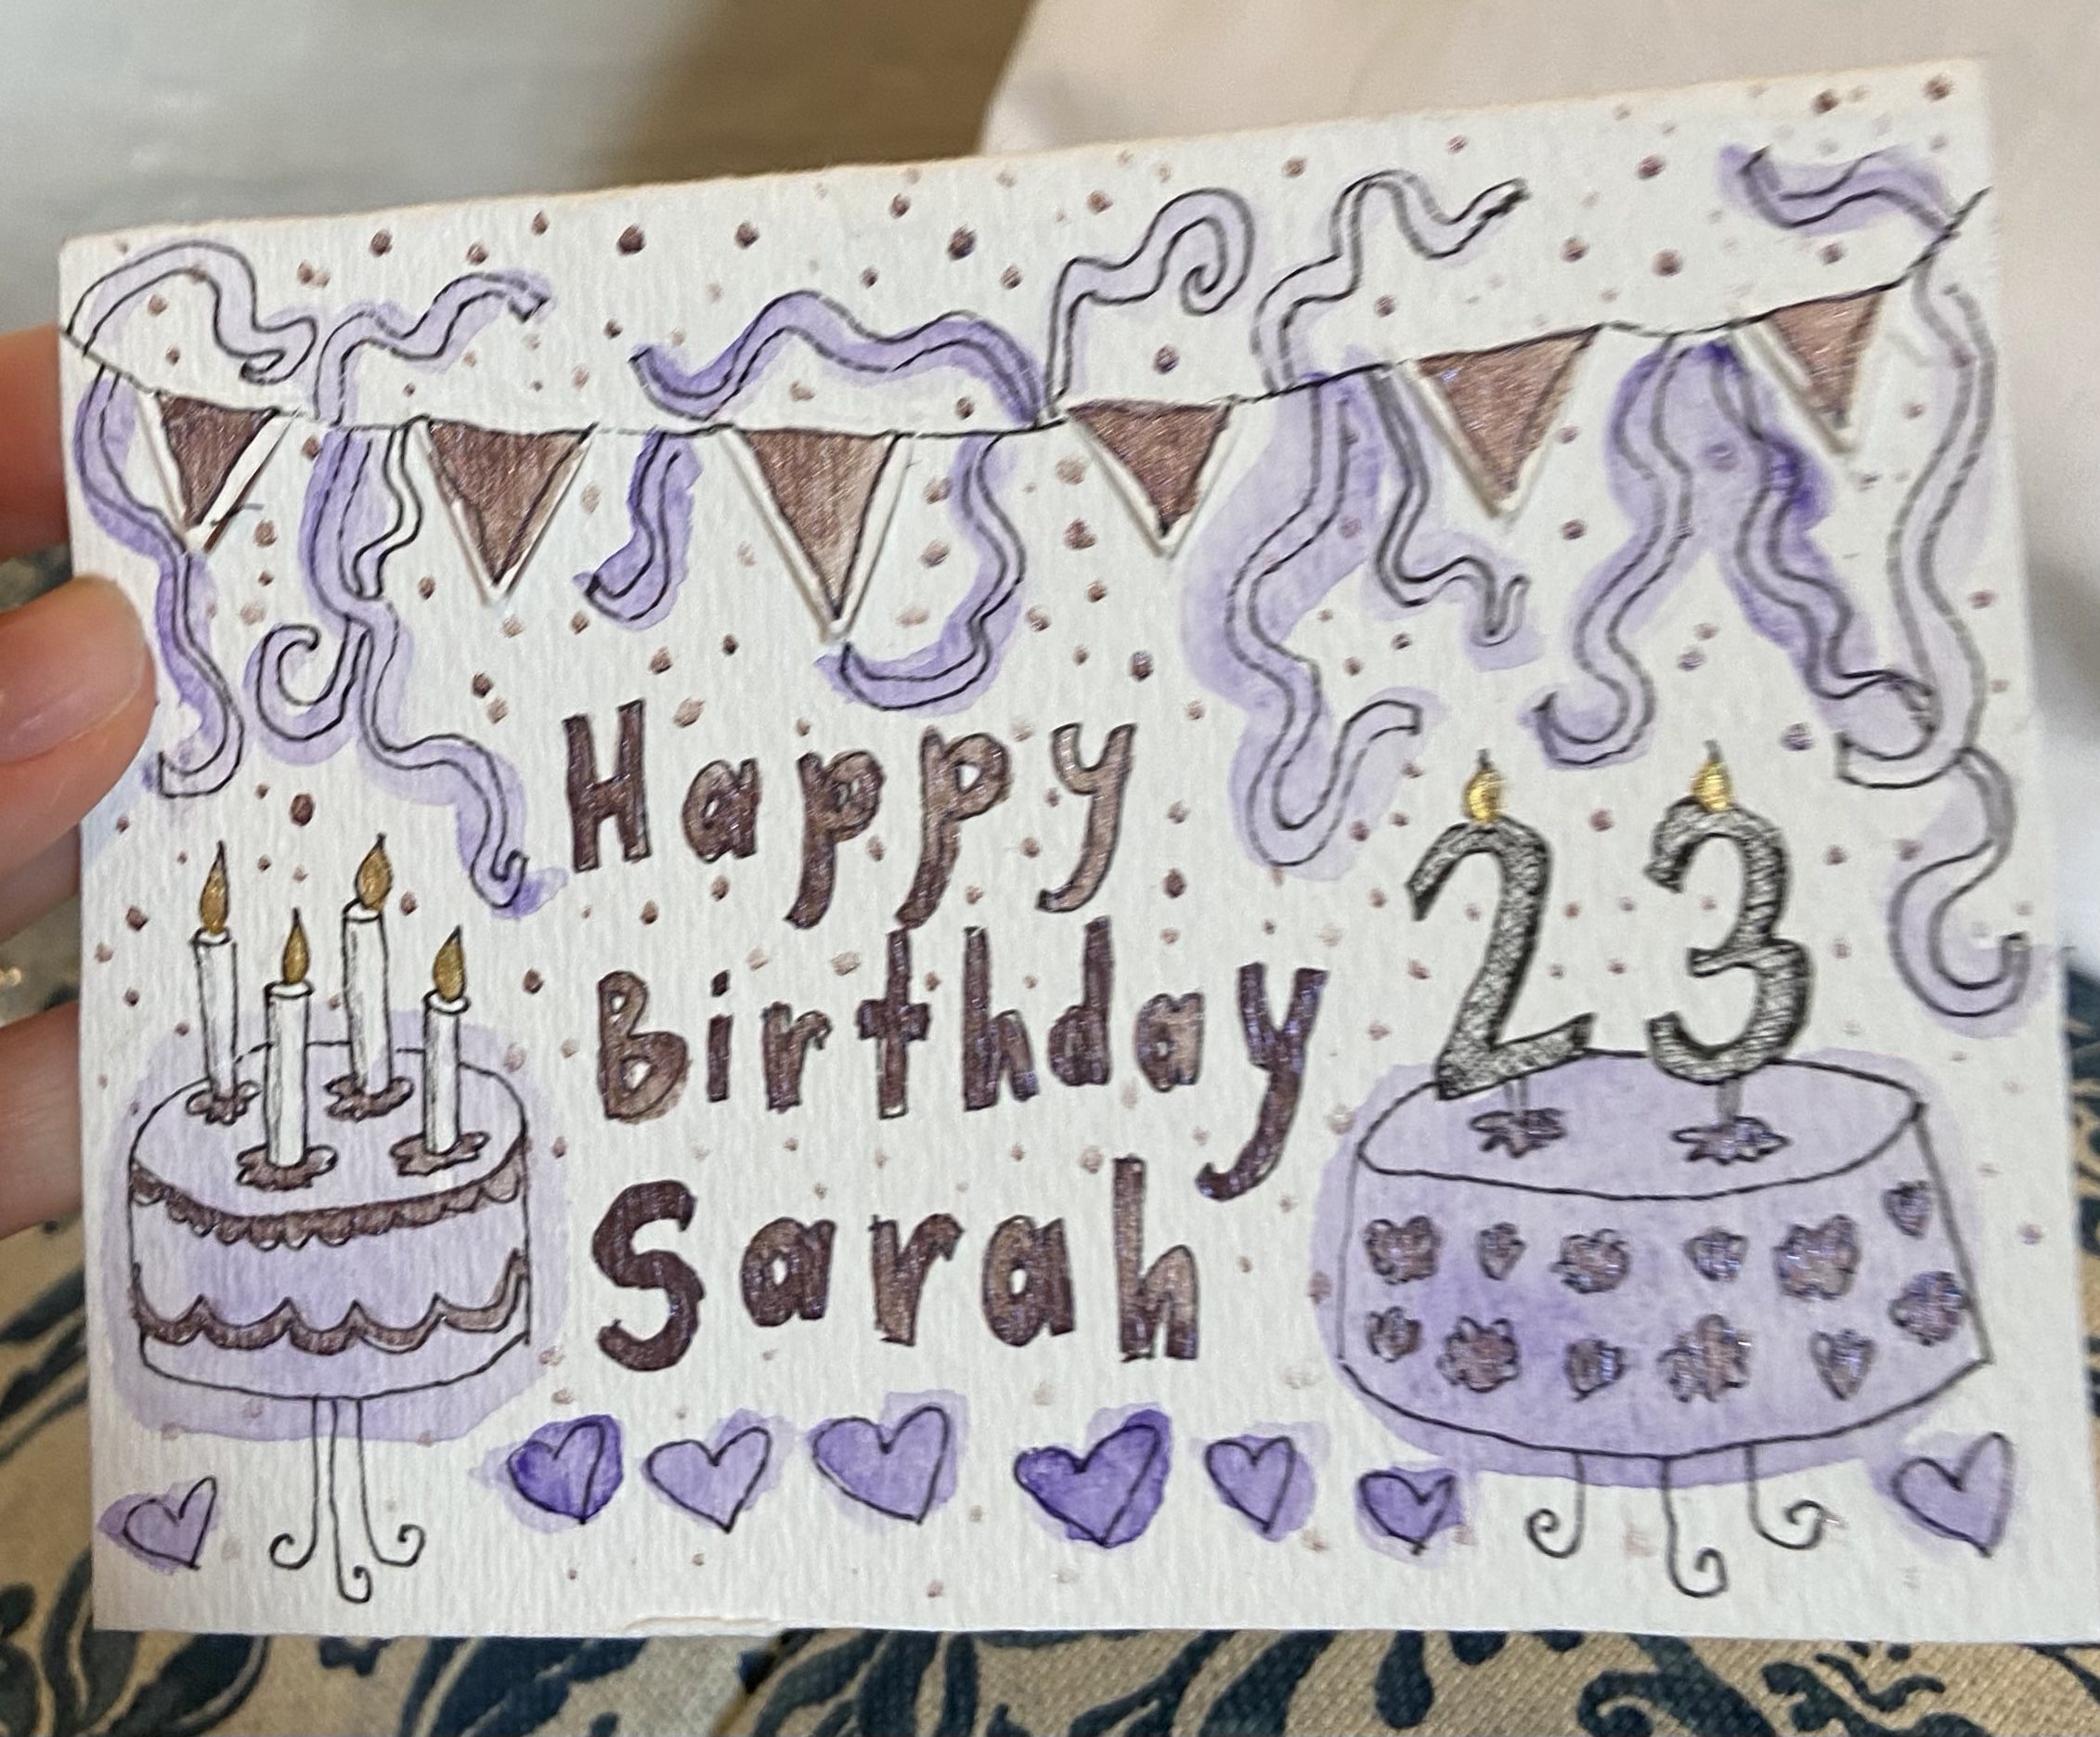 Happy
Birthday
Sarah
23